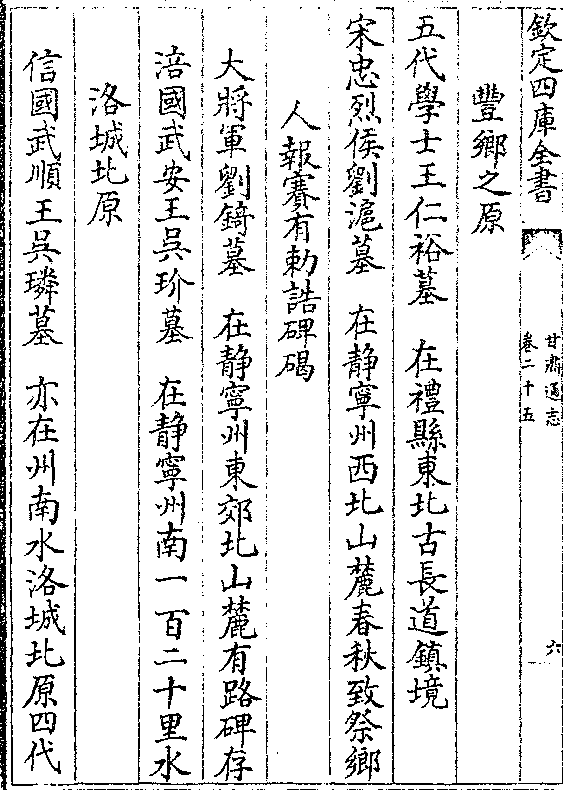 欽定四庫全書
甘肅通志
卷二十五
六
豐鄉之原
五代學士王仁裕墓　在禮縣東北古長道鎮境
宋忠烈侯劉滬墓　在静寧州西北山麓春秋致祭鄉
人報賽有勅誥碑碣
大將軍劉錡墓　在静寧州東郊北山麓有路碑存
涪國武安王吳玠墓　在静寧州南一百二十里水
洛城北原
信國武順王吳璘墓　亦在州南水洛城北原四代